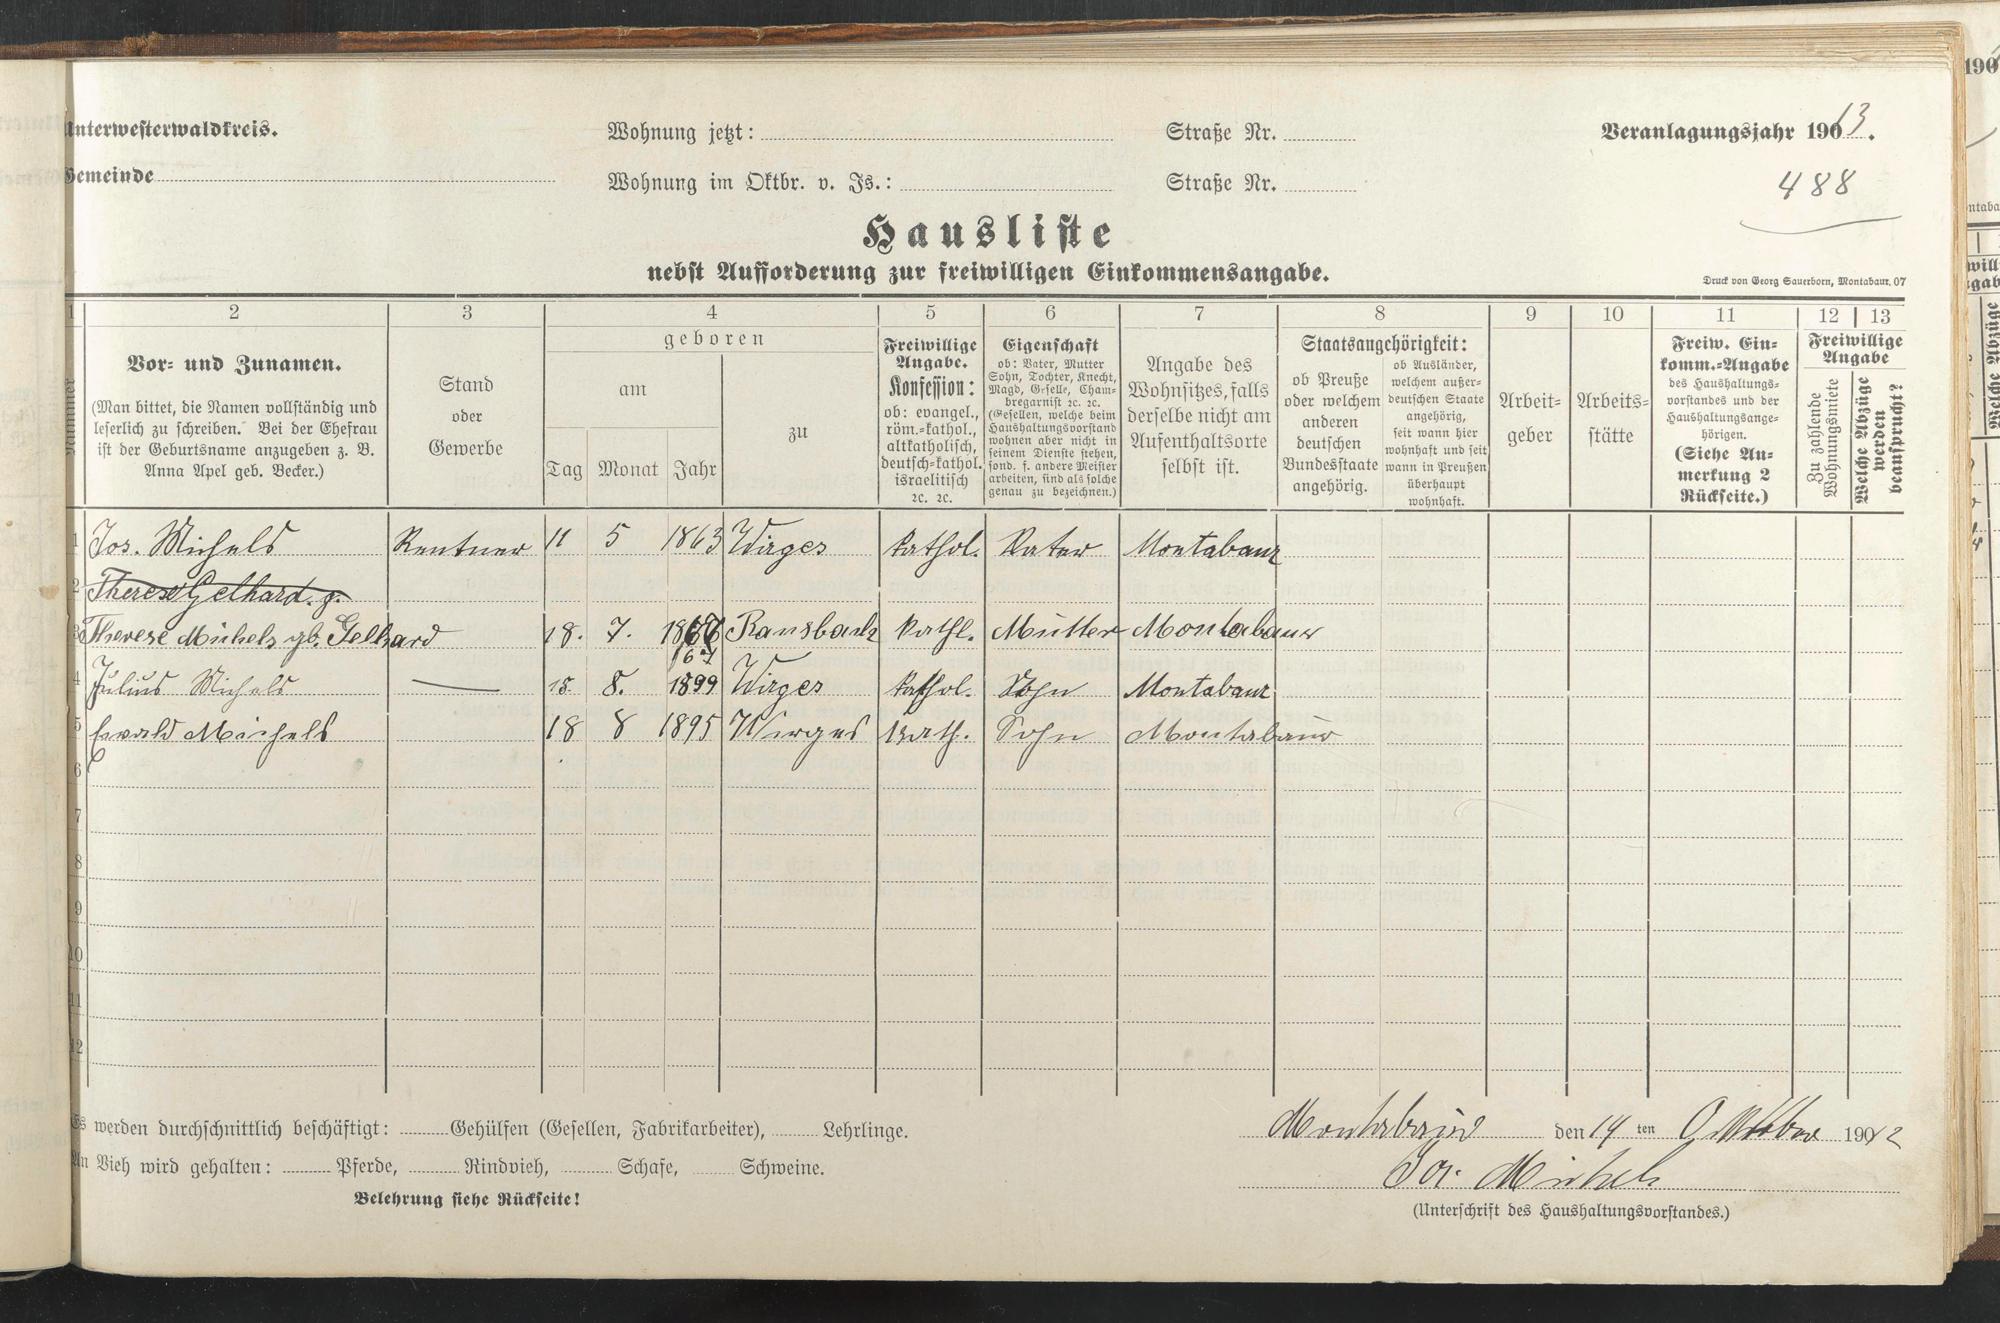 Unterwesterwaldkreis. Wohnung jetzt: Straße Nr. Veranlagungsjahr 1913.
Gemeinde Wohnung im Oktbr. v. Js.: Straße Nr. 488
Hausliste
nebst Aufforderung zur freiwilligen Einkommensangabe.
Druck von Georg Sauerborn, Montabaur. 07
1 2 3 4 5 6 7 8 9 10 11 12 13
Nummer
Vor- und Zunamen.
(Man bittet, die Namen vollständig und
leserlich zu schreiben. Bei der Ehefrau
ist der Geburtsname anzugeben z. B.
Anna Apel geb. Becker.)
Stand
oder
Gewerbe
geboren
am
Tag Monat Jahr
zu
Freiwillige
Angabe.
Konfession:
ob: evangel.,
röm.-kathol.,
altkatholisch,
deutsch-kathol.
israelitisch
ꝛc. ꝛc.
Eigenschaft
ob: Vater, Mutter
Sohn, Tochter, Knecht,
Magd, Geselle, Cham-
bregarnist ꝛc. ꝛc.
(Gesellen, welche beim
Haushaltungsvorstand
wohnen aber nicht in
seinem Dienste stehen,
sond. f. andere Meister
arbeiten, sind als solche
genau zu bezeichnen.)
Angabe des
Wohnsitzes, falls
derselbe nicht am
Aufenthaltsorte
selbst ist.
Staatsangehörigkeit:
ob Preuße
oder welchem
anderen
deutschen
Bundesstaate
angehörig.
ob Ausländer,
welchem außer-
deutschen Staate
angehörig,
seit wann hier
wohnhaft und seit
wann in Preußen
überhaupt
wohnhaft.
Arbeit-
geber
Arbeits-
stätte
Freiw. Ein-
komm.-Angabe
des Haushaltungs-
vorstandes und der
Haushaltungsange-
hörigen.
(Siehe An-
merkung 2
Rückseite.)
Freiwillige
Angabe
Zu zahlende
Wohnungsmiete
Welche Abzüge
werden
beansprucht?
1 Jos. Michels Rentner 11 5 1863 Wirges kathol. Vater Montabaur
2 Therese Gelhard. g.
3 Therese Michels gb. Gelhard 18. 7. 1867 Ransbach kathl. Mutter Montabaur
67
4 Julius Michels — 15. 8. 1899 Wirges kathol. Sohn Montabaur
5 Ewald Michels 18 8 1895 Wirges Kath. Sohn Montabaur
6
7
8
9
10
11
12
Es werden durchschnittlich beschäftigt: Gehülfen (Gesellen, Fabrikarbeiter), Lehrlinge.
An Vieh wird gehalten: Pferde, Rindvieh, Schafe, Schweine.
Belehrung siehe Rückseite!
Montabaur den 14 ten Oktober 1912
Jos. Michels
(Unterschrift des Haushaltungsvorstandes.)